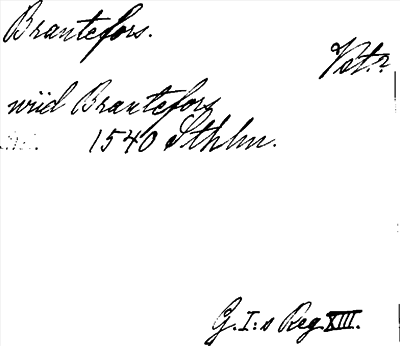 Brantefors.
Vat.?
wiid Brantefors
1540 Sthlm.
G. I:s Reg. XIII.